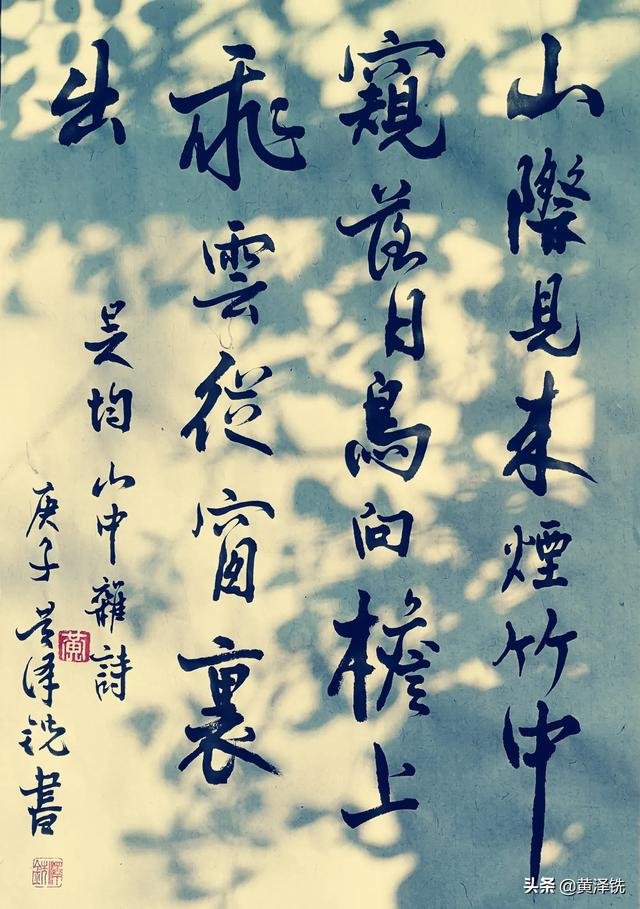 山際見来煙竹中
窺落日鳥向檐上
飛雲從窗裏
出
吴均山中雜詩
庚子黄泽铣書
黄
澤銑
头条 @黄泽铣